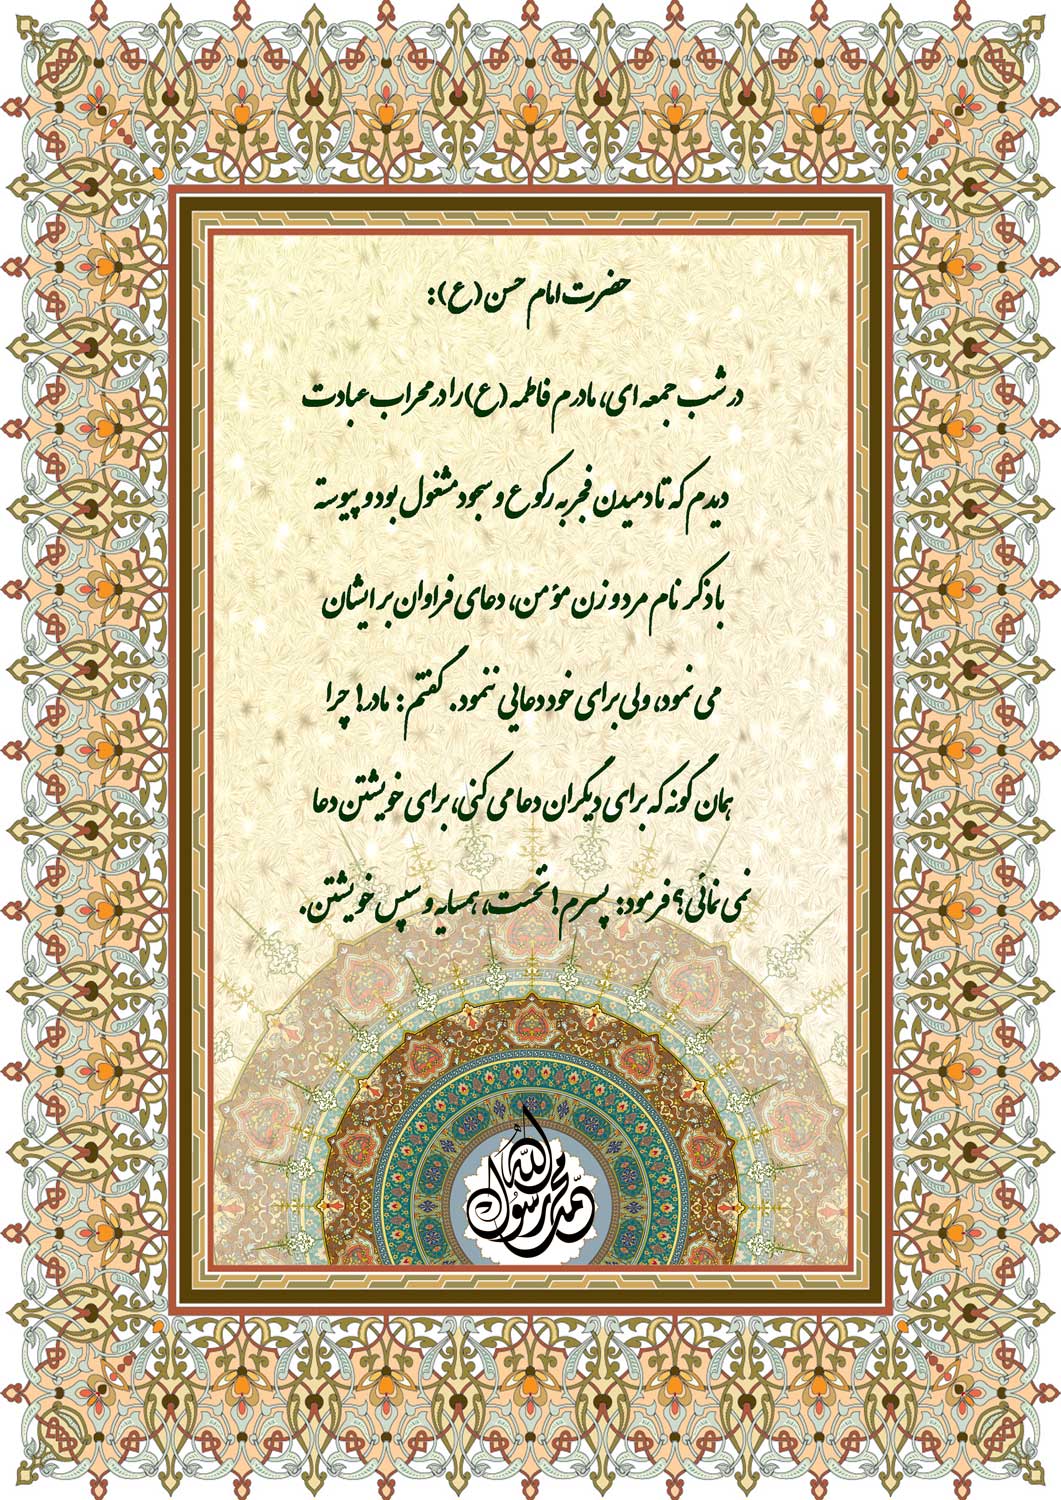 حضرت امام حسن (ع):
در شب جمعه ای، مادرم فاطمه (ع) را در محراب عبادت
دیدم که تا دمیدن فجر به رکوع و سجود مشغول بود و پیوسته
با ذکر نام مرد و زن مؤمن، دعای فراوان برایشان
می نمود، ولی برای خود دعایی ننمود. گفتم: مادر! چرا
همان گونه که برای دیگران دعا می کنی، برای خویشتن دعا
نمی نمائی؟ فرمود: پسرم! نخست، همسایه و سپس خویشتن.
محمد رسول الله